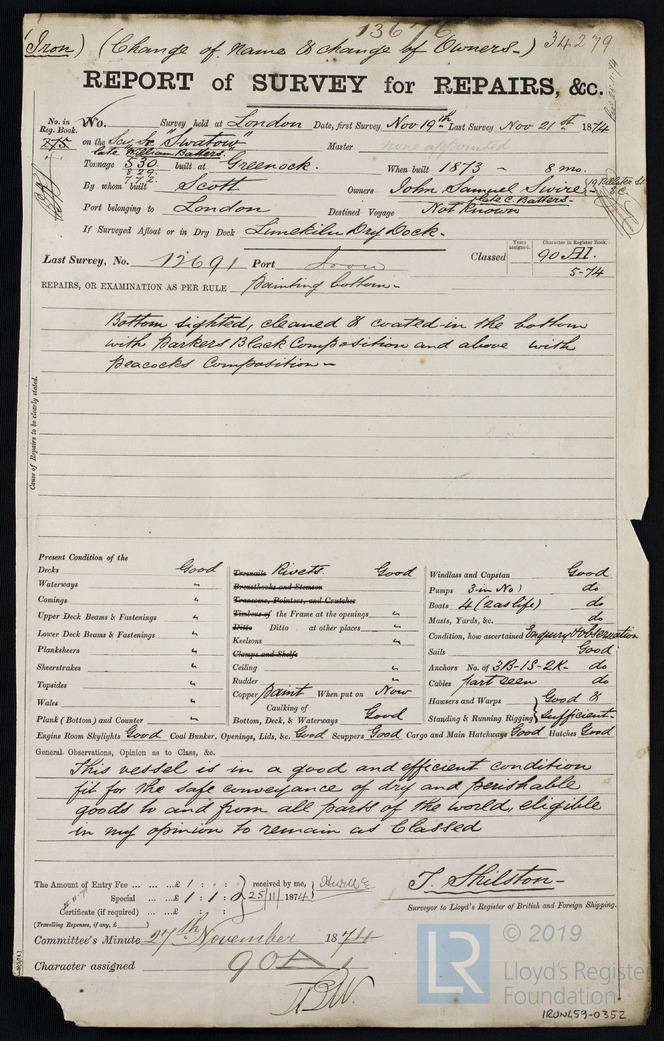 13676
(Iron) (Change of Name & change of Owners-) 34279
REPORT of SURVEY for REPAIRS, &c.
No. in Reg. Book. No. Survey held at London Date, first Survey Nov 19th Last Survey Nov 21st 1874
275 on the Scw Sr "Swatow" Master none appointed
late William Batters.
Tonnage 530 built at Greenock. When built 1873 - 8 mo.
529
772
By whom built Scott Owners John Samuel Swire
late C. Batters-
Port belonging to London Destined Voyage Not Known
If Surveyed Afloat or in Dry Dock Limekiln Dry Dock.
Last Survey, No. 12691 Port Iron Classed Years assigned. Character in Register Book. 90 A1.
5-74
REPAIRS, OR EXAMINATION AS PER RULE Painting bottom-
Bottom sighted, cleaned & coated in the bottom
with Parkers Black Composition and above with
Peacocks Composition-
Cause of Repairs to be clearly stated.
Present Condition of the
Decks Good
Waterways "
Comings "
Upper Deck Beams & Fastenings "
Lower Deck Beams & Fastenings "
Planksheers "
Sheerstrakes "
Topsides "
Wales "
Plank (Bottom) and Counter "
Treenails Rivets. Good
Breasthooks and Stemson
Transoms, Pointers, and Crutches
Timbers of the Frame at the openings "
Ditto Ditto at other places "
Keelsons "
Clamps and Shelfs
Ceiling "
Rudder "
Copper Paint When put on Now
Caulking of
Bottom, Deck, & Waterways Good
Windlass and Capstan Good
Pumps 3 in No) do
Boats 4 (2 as life) do
Masts, Yards, &c. do
Condition, how ascertained Enquiry & observation
Sails Good
Anchors No. of 3B-1S-2K. do
Cables part seen do
Hawsers and Warps } Good &
Standing & Running Rigging } sufficient-
Engine Room Skylights Good Coal Bunker, Openings, Lids, &c. Good Scuppers Good Cargo and Main Hatchways Good Hatches Good
General Observations, Opinion as to Class, &c.
This vessel is in a good and efficient condition
fit for the safe conveyance of dry and perishable
goods to and from all parts of the world, eligible
in my opinion to remain as Classed
The Amount of Entry Fee ... ... ...£ 1 : : received by me,
Special ... ...£ 1 : 1 : 25/11/1874
Certificate (if required) ... ...£ : :
(Travelling Expenses, if any, £ )
T. Shilston-
Surveyor to Lloyd's Register of British and Foreign Shipping.
Committee's Minute 27th November 1874
Character assigned 90A1
LR © 2019
Lloyd's Register
Foundation
IRON459-0352